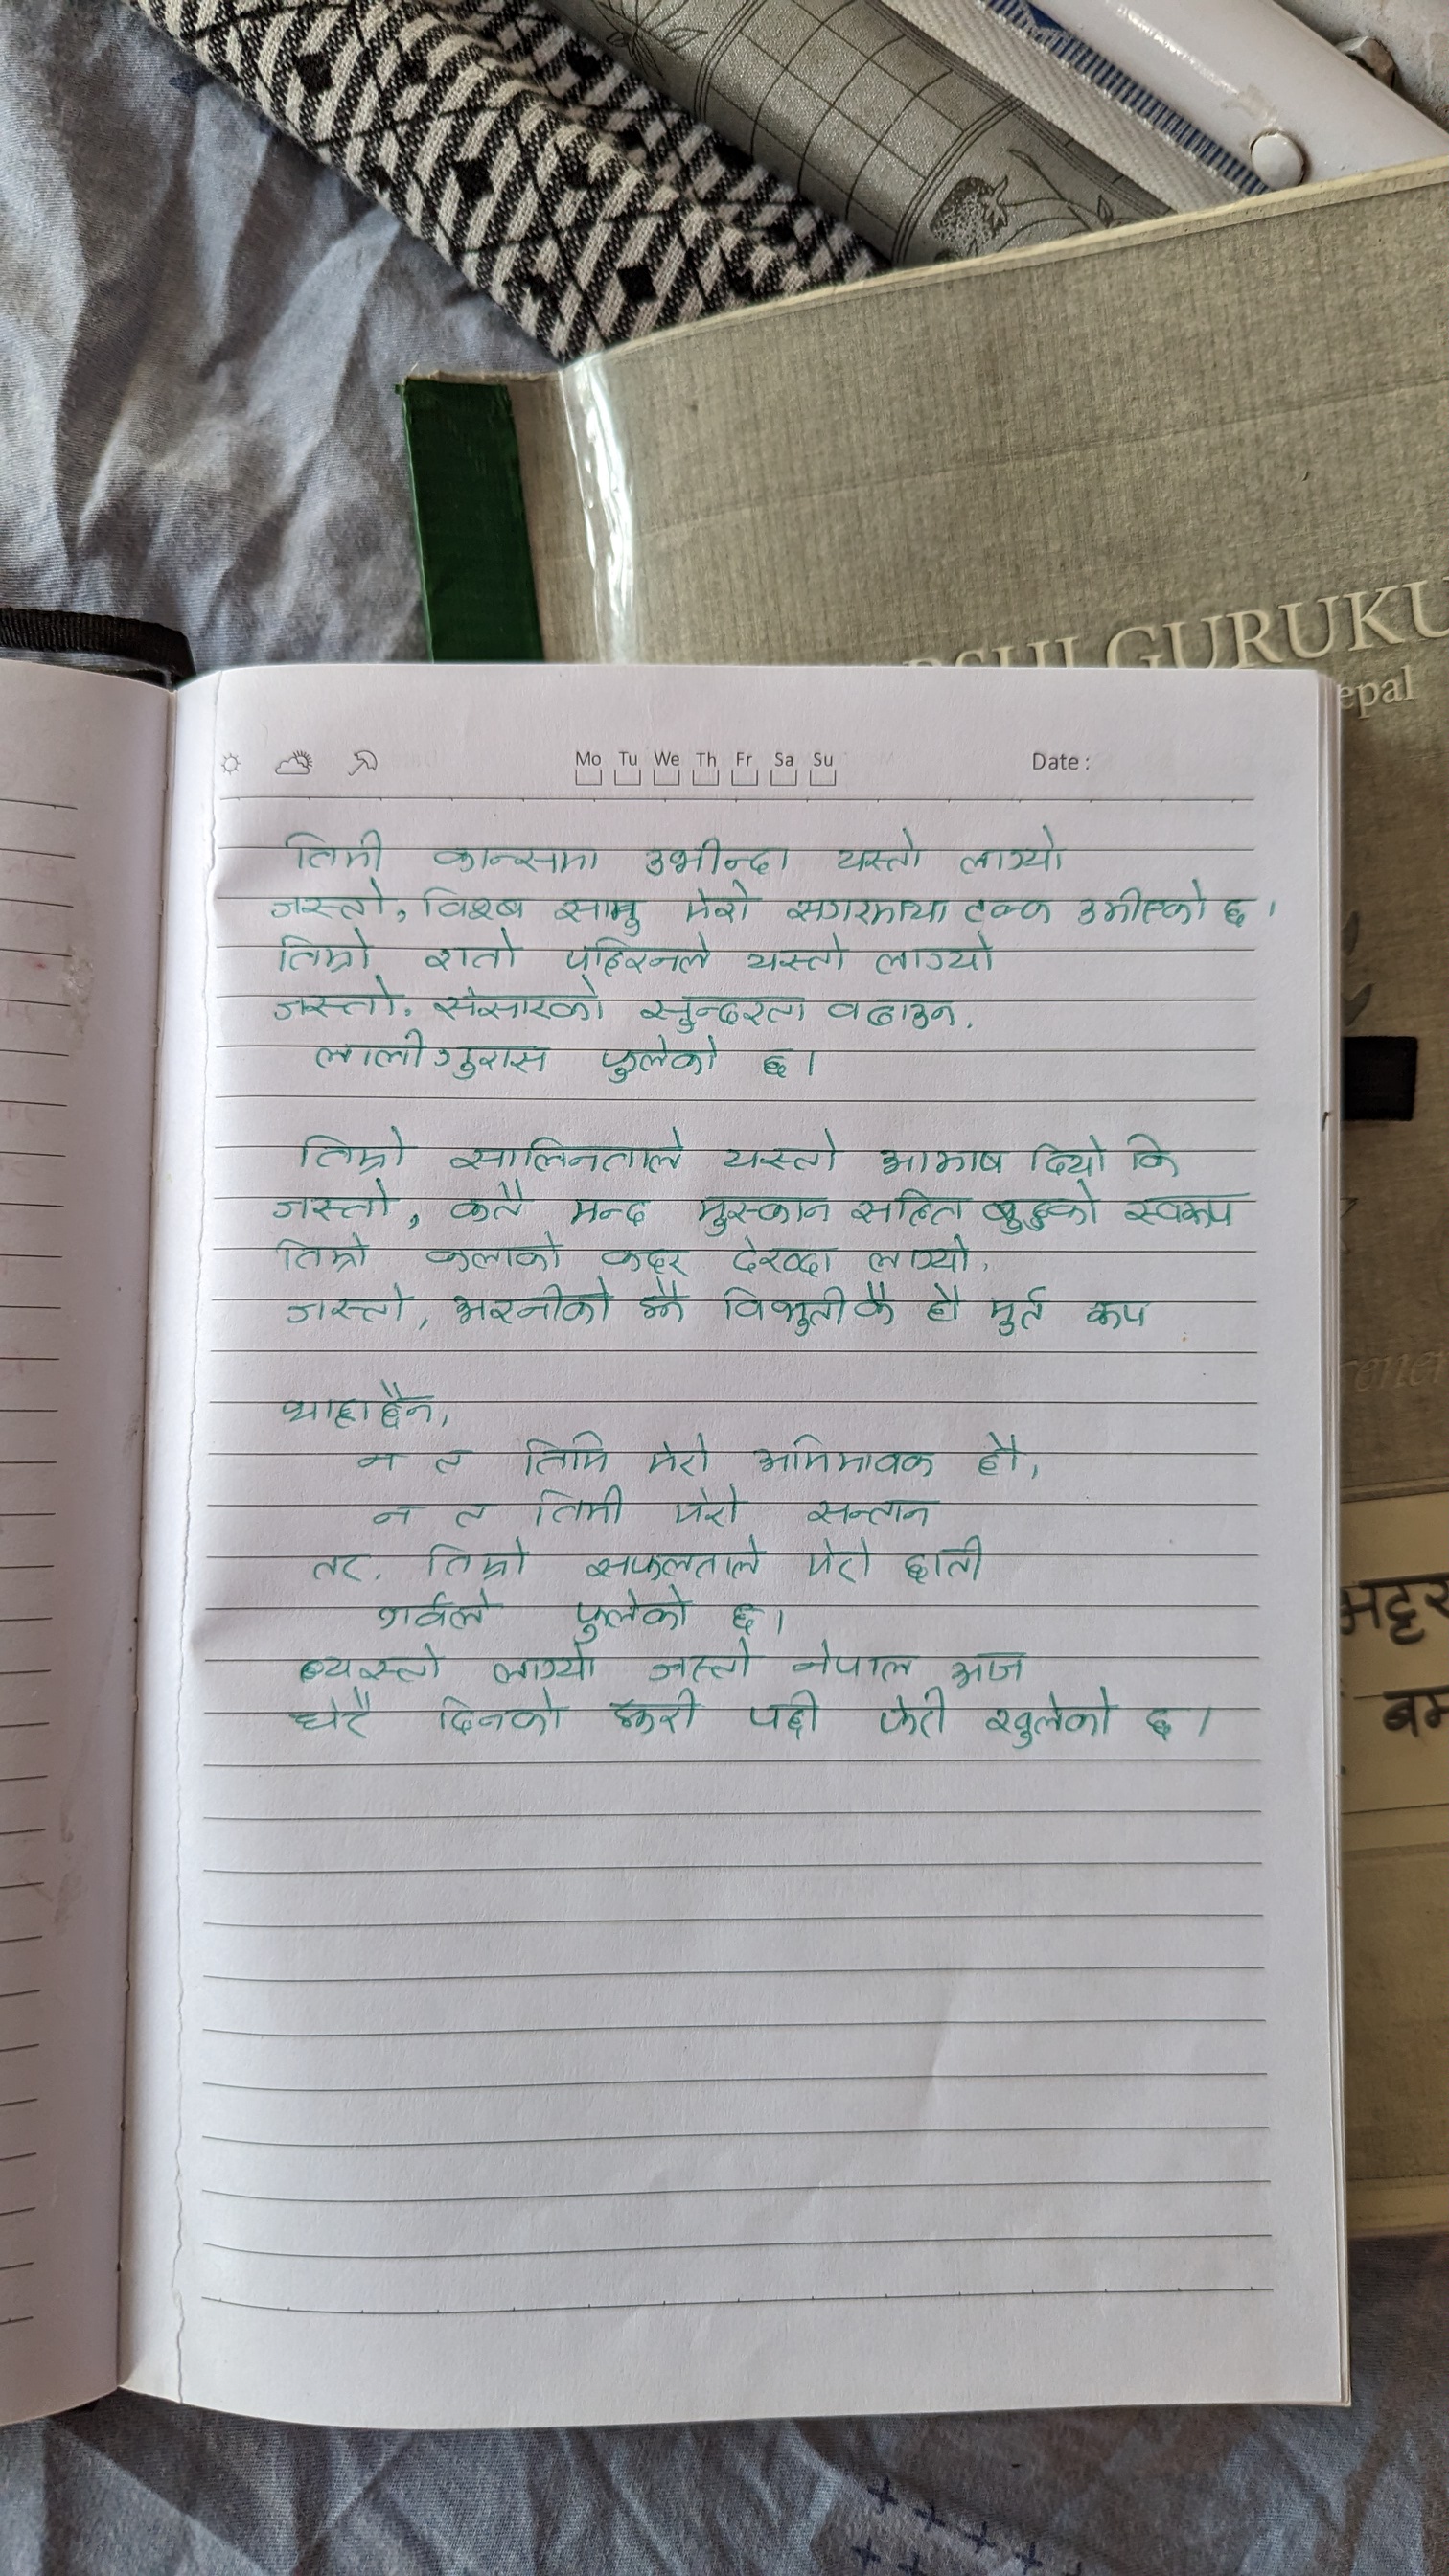 GURUKU
epal
Mo Tu We Th Fr Sa Su
Date :
तिमी कान्समा उभीन्दा यस्तो लाग्यो
जस्तो, विश्व सामु मेरो सगरमाथा टक्क उभीएको छ।
तिम्रो रातो पहिरनले यस्तो लाग्यो
जस्तो, संसारको सुन्दरता बढाउन,
लालीगुरास फुलेको छ।
तिम्रो सालिनताले यस्तो आभाष दियो कि
जस्तो, कतै मन्द मुस्कान सहित बुद्धको स्वरूप
तिम्रो कलाको कदर देख्दा लाग्यो,
जस्तो, अरनीको झै विभुतीकै हौ मुर्त रूप
थाहाछैन,
न त तिमि मेरो अभिभावक हौ,
न त तिमी मेरो सन्तान
तर, तिम्रो सफलताले मेरो छाती
गर्वले फुलेको छ।
त्यस्तो लाग्यो जस्तो नेपाल आज
धेरै दिनको झरी पछी फेरी खुलेको छ।